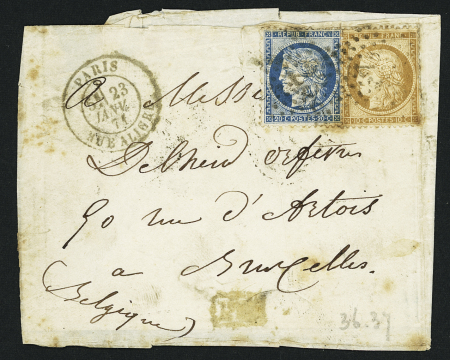 PARIS
23
JANV.
71
RUE ALIGRE
REPUB. FRANC.
20 C POSTES 20 C
FRANC.
10 C POSTES 10 C
A Messi
Debheid orfèvres
50 rue d'Artois
a Bruxelles.
(Belgique)
36.37